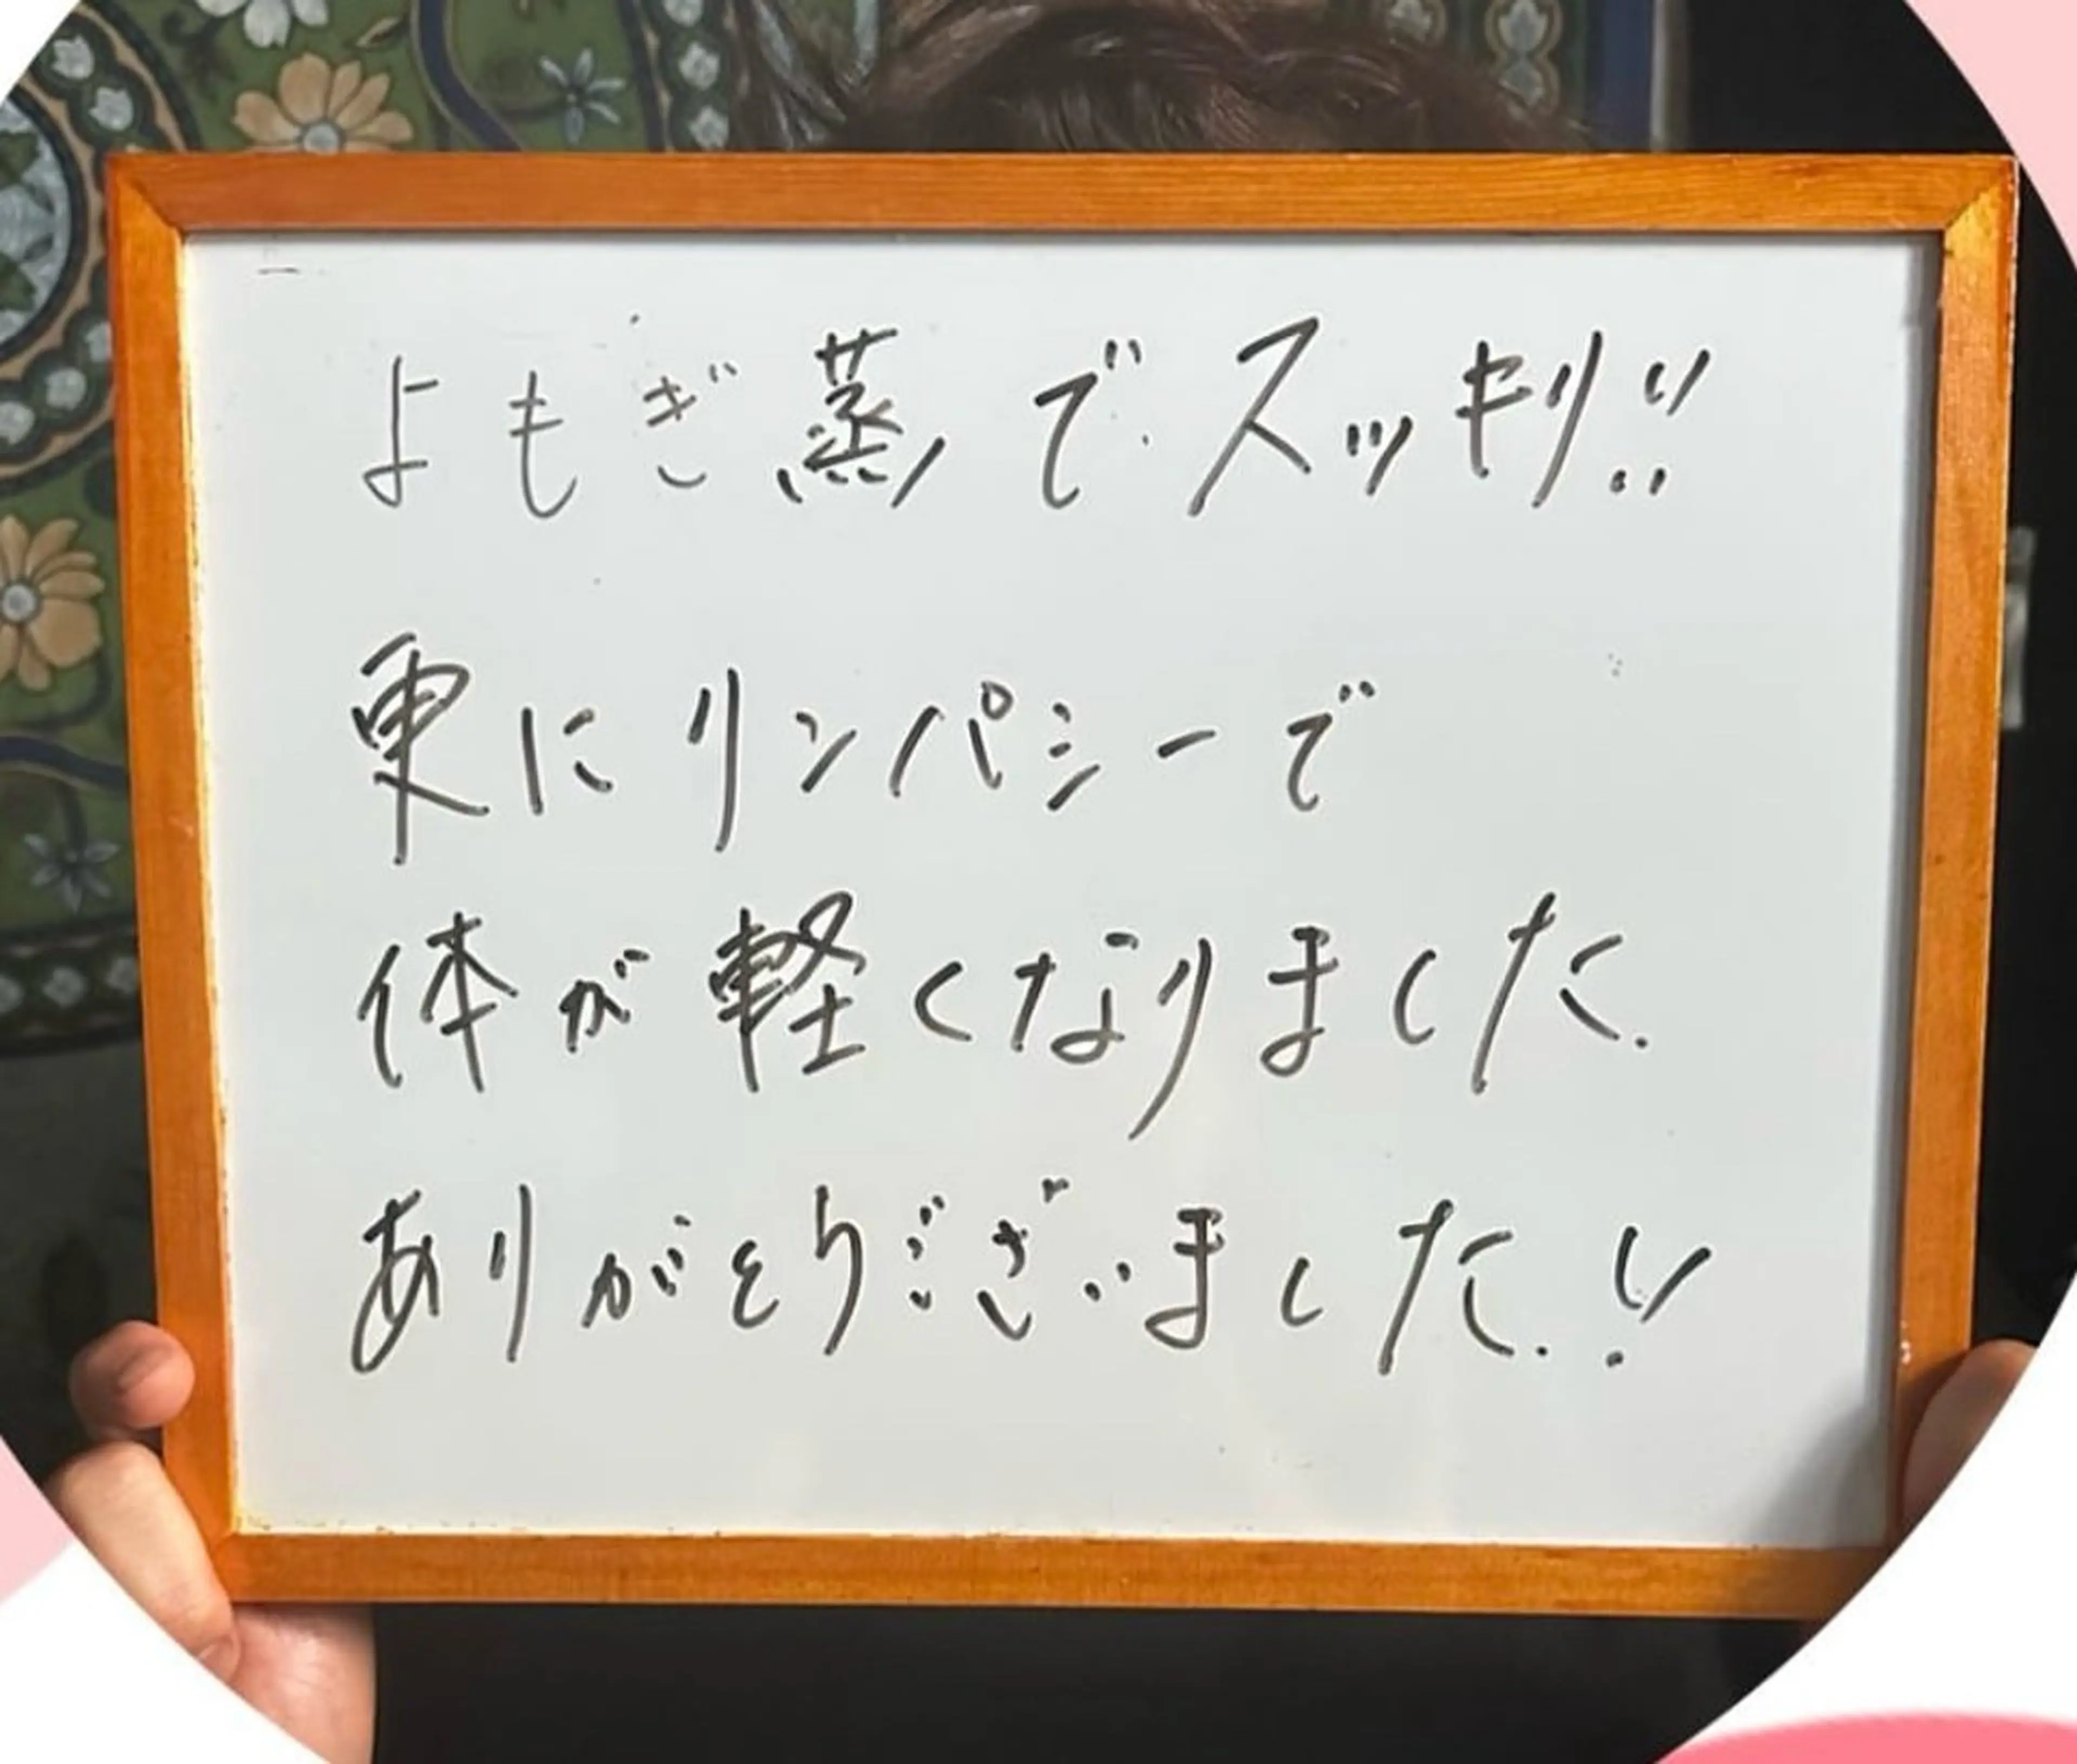 よもぎ蒸しでスッキリ!!
更にリンパシーで
体が軽くなりました.
ありがとうございました.!